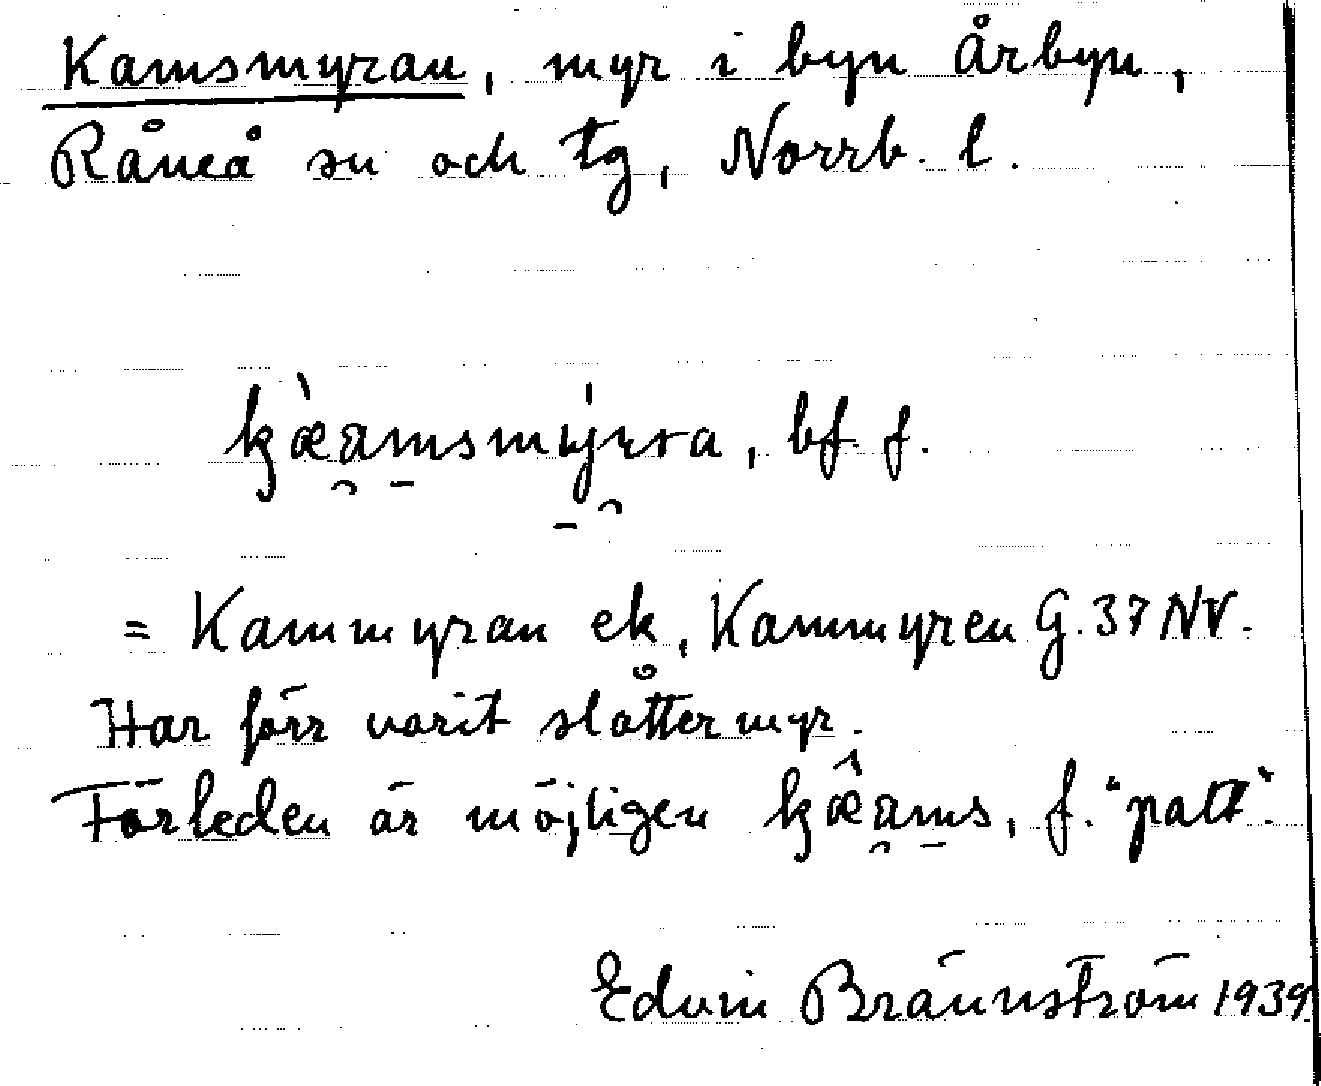 Kamsmyran, myr i byn Årbyn,
Råneå sn och tg, Norrb. l.
kæ̀a̯m̱smýrra, bf. f.
= Kammyran ek, Kammyren G. 37 NV.
Har förr varit slåttermyr.
Förleden är möjligen kæ̂a̯m̱s, f. "palt".
Edvin Brännström 1939